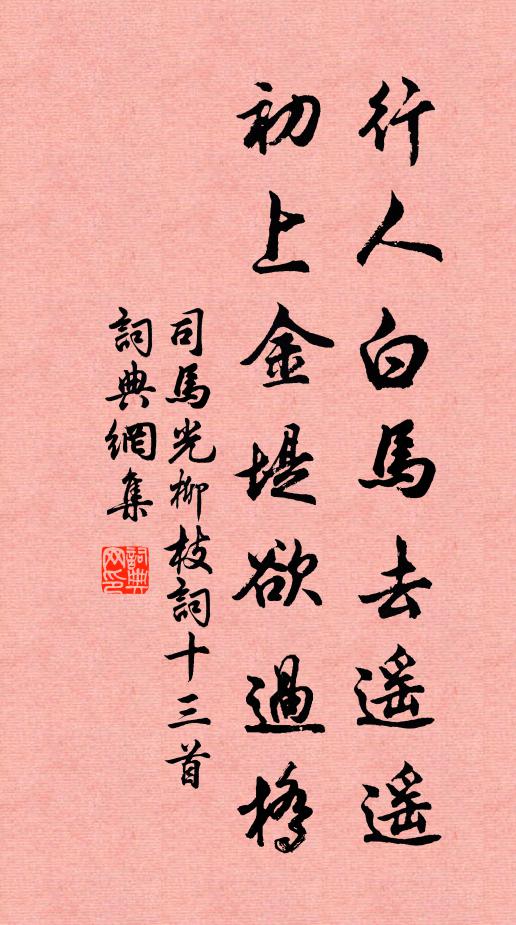 行人白馬去遥遥
初上金堤欲過橋
司馬光柳枝詞十三首
詞典網集
詞典网印